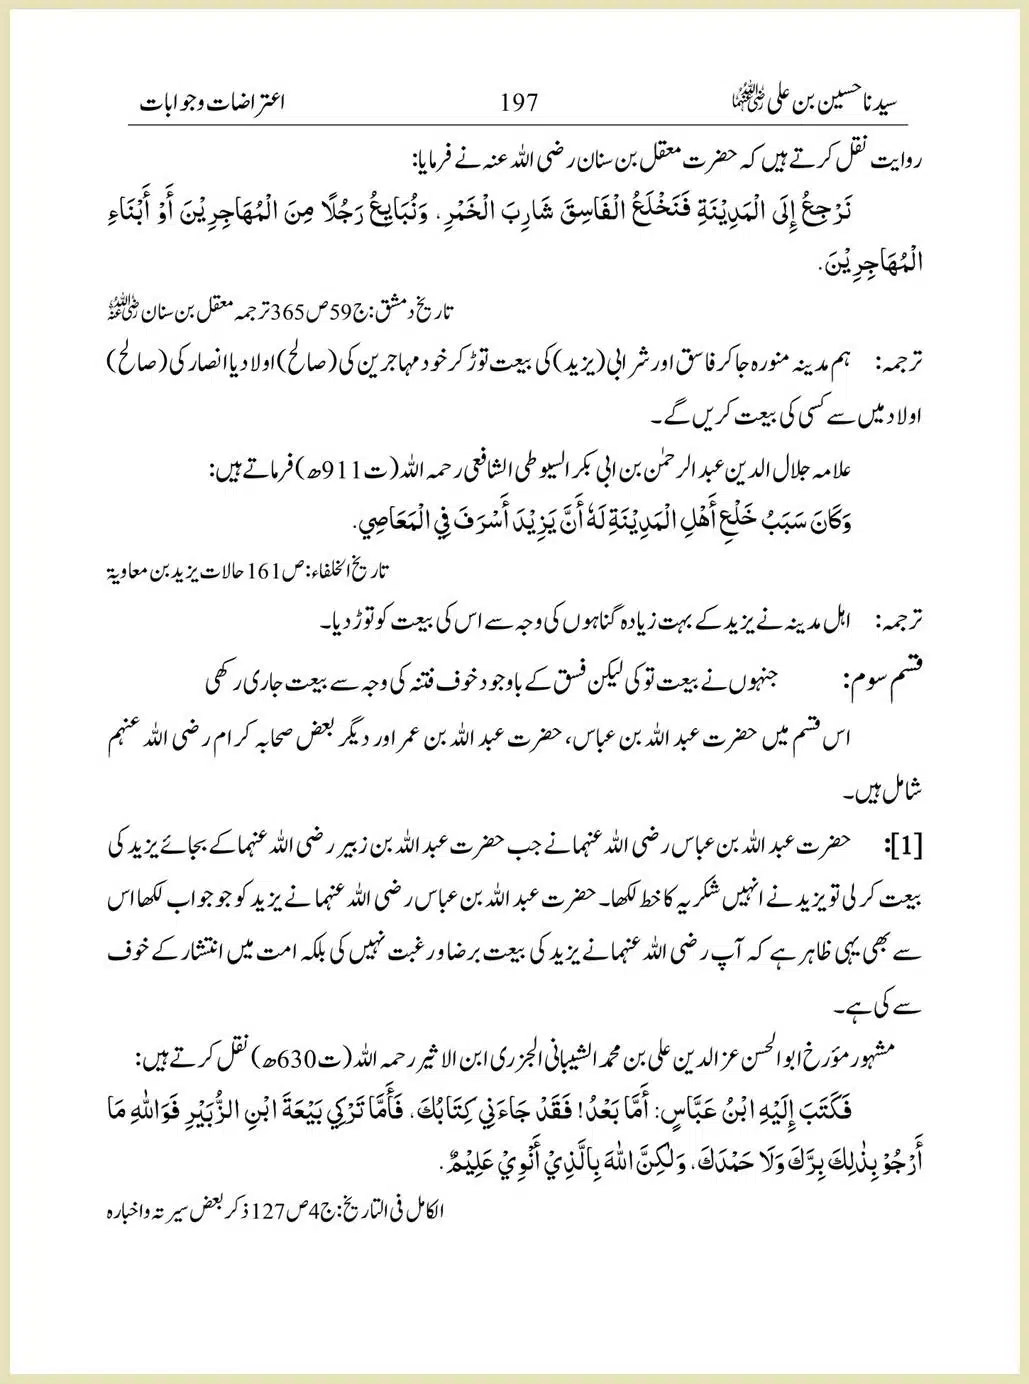 سیدنا حسین بن علی رضی اللہ عنہما 197 اعتراضات و جوابات
روایت نقل کرتے ہیں کہ حضرت معقل بن سنان رضی اللہ عنہ نے فرمایا:
نَرْجِعُ إِلَى الْمَدِيْنَةِ فَنَخْلَعُ الْفَاسِقَ شَارِبَ الْخَمْرِ، وَنُبَايِعُ رَجُلًا مِنَ الْمُهَاجِرِيْنَ أَوْ أَبْنَاءِ
الْمُهَاجِرِيْنَ.
تاریخ دمشق: ج59 ص365 ترجمہ معقل بن سنان رضی اللہ عنہ
ترجمہ: ہم مدینہ منورہ جا کر فاسق اور شرابی (یزید) کی بیعت توڑ کر خود مہاجرین کی (صالح) اولاد یا انصار کی (صالح)
اولاد میں سے کسی کی بیعت کریں گے۔
علامہ جلال الدین عبد الرحمٰن بن ابی بکر السیوطی الشافعی رحمہ اللہ (ت911ھ) فرماتے ہیں:
وَكَانَ سَبَبُ خَلْعِ أَهْلِ الْمَدِيْنَةِ لَهٗ أَنَّ يَزِيْدَ أَسْرَفَ فِي الْمَعَاصِي.
تاریخ الخلفاء: ص161 حالات یزید بن معاویۃ
ترجمہ: اہل مدینہ نے یزید کے بہت زیادہ گناہوں کی وجہ سے اس کی بیعت کو توڑ دیا۔
قسم سوم: جنہوں نے بیعت تو کی لیکن فسق کے باوجود خوف فتنہ کی وجہ سے بیعت جاری رکھی
اس قسم میں حضرت عبد اللہ بن عباس، حضرت عبد اللہ بن عمر اور دیگر بعض صحابہ کرام رضی اللہ عنہم
شامل ہیں۔
[1]: حضرت عبد اللہ بن عباس رضی اللہ عنہما نے جب حضرت عبد اللہ بن زبیر رضی اللہ عنہما کے بجائے یزید کی
بیعت کر لی تو یزید نے انہیں شکریہ کا خط لکھا۔ حضرت عبد اللہ بن عباس رضی اللہ عنہما نے یزید کو جو جواب لکھا اس
سے بھی یہی ظاہر ہے کہ آپ رضی اللہ عنہما نے یزید کی بیعت برضا و رغبت نہیں کی بلکہ امت میں انتشار کے خوف
سے کی ہے۔
مشہور مؤرخ ابو الحسن عز الدین علی بن محمد الشیبانی الجزری ابن الاثیر رحمہ اللہ (ت630ھ) نقل کرتے ہیں:
فَكَتَبَ إِلَيْهِ ابْنُ عَبَّاسٍ: أَمَّا بَعْدُ! فَقَدْ جَاءَنِي كِتَابُكَ، فَأَمَّا تَرْكِي بَيْعَةَ ابْنِ الزُّبَيْرِ فَوَاللّٰهِ مَا
أَرْجُوْ بِذٰلِكَ بِرَّكَ وَلَا حَمْدَكَ، وَلٰكِنَّ اللّٰهَ بِالَّذِيْ أَنْوِيْ عَلِيْمٌ.
الکامل فی التاریخ: ج4 ص127 ذکر بعض سیرتہ و اخبارہ